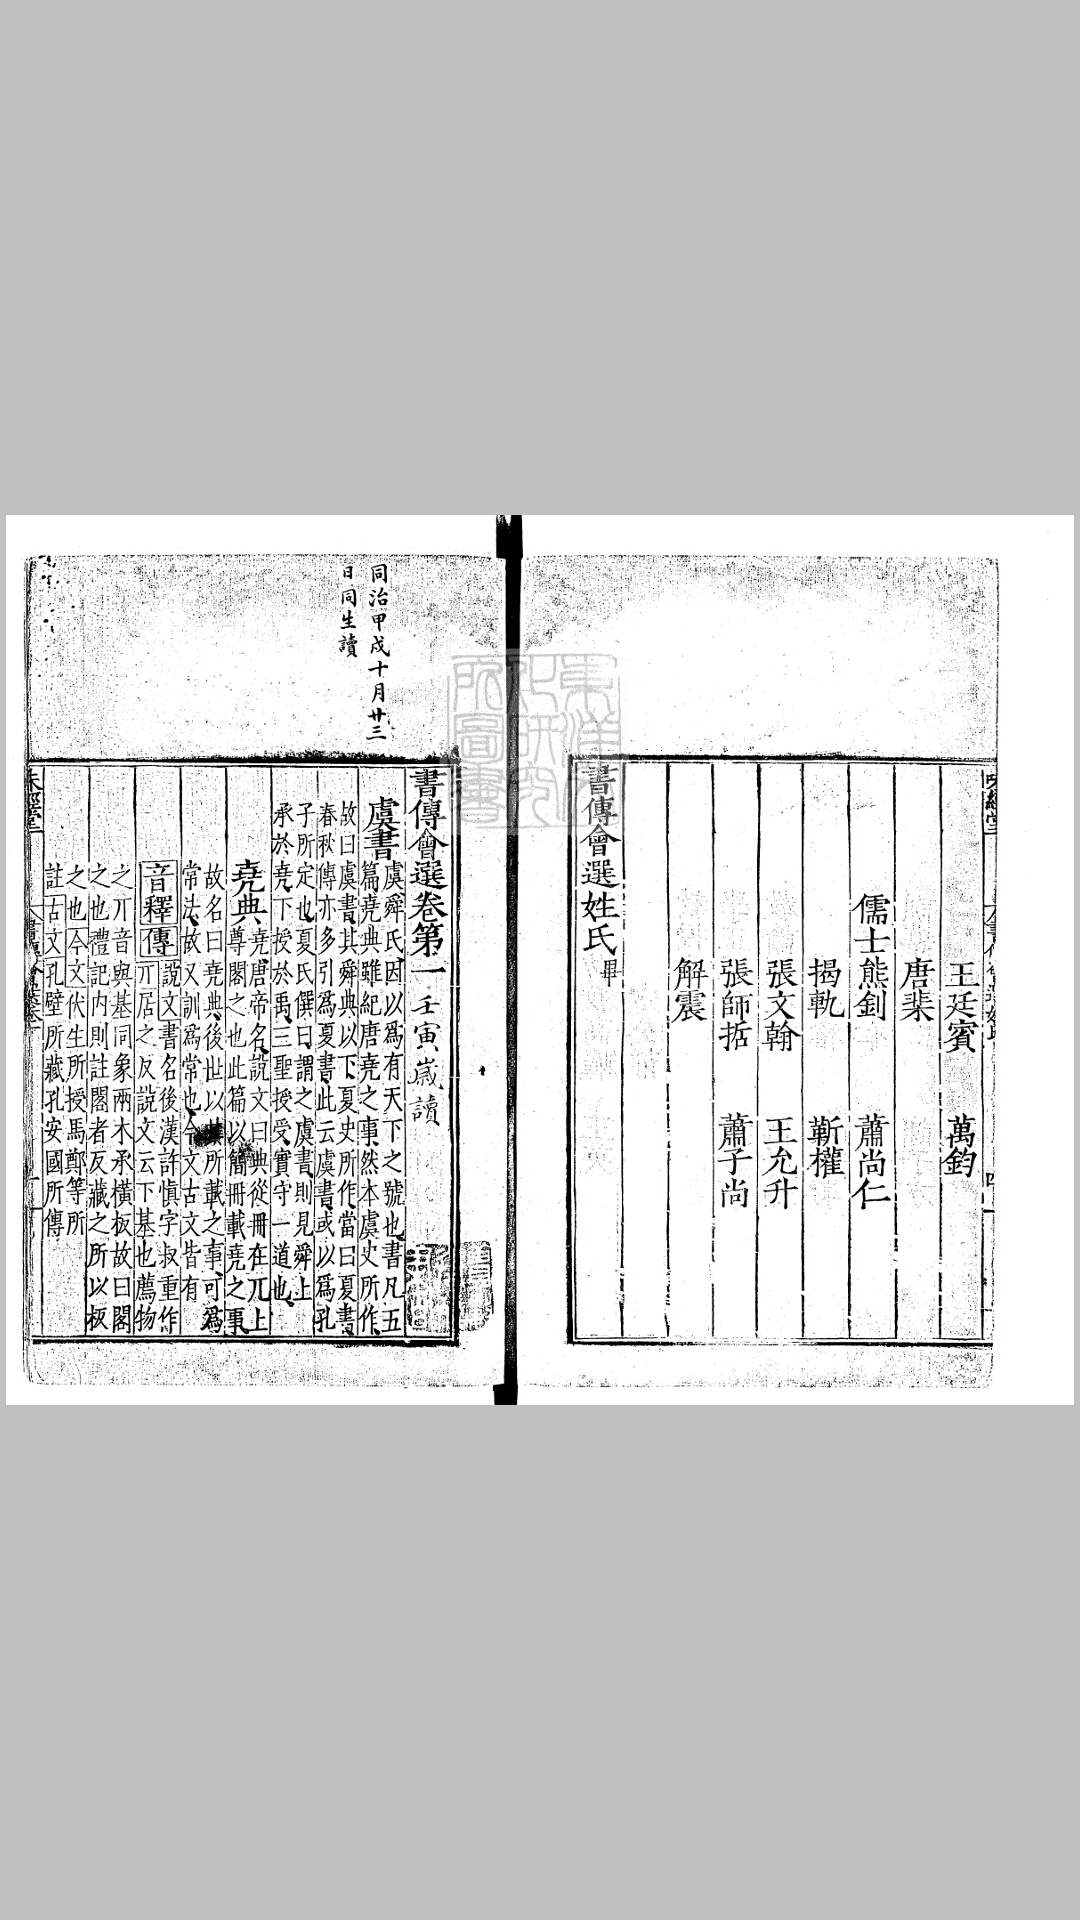 王廷賓　萬鈞
唐棐
儒士熊釗　蕭尚仁
揭軌　靳權
張文翰　王允升
張師哲　蕭子尚
解震
書傳會選姓氏畢
同治甲戌十月廿三
日同生讀
書傳會選卷第一　壬寅歲讀
虞書
虞舜氏因以爲有天下之號也書凡五
篇堯典雖紀唐堯之事然本虞史所作
故曰虞書其舜典以下夏史所作當曰夏書
春秋傳亦多引爲夏書此云虞書或以爲孔
子所定也夏氏僎曰謂之虞書則見舜上
承於堯下授於禹三聖授受實守一道也
堯典
堯唐帝名說文曰典從冊在丌上
尊閣之也此篇以簡冊載堯之事
故名曰堯典後世以其所載之事可爲
常法故又訓爲常也今文古文皆有
音釋
傳
說文書名後漢許慎字叔重作
丌居之反說文云下基也薦物
之丌音與基同象兩木承橫板故曰閣
之也禮記內則註閣者反藏之所以板
之也今文伏生所授馬鄭等所
註古文孔壁所藏孔安國所傳
東洋文化研究所圖書